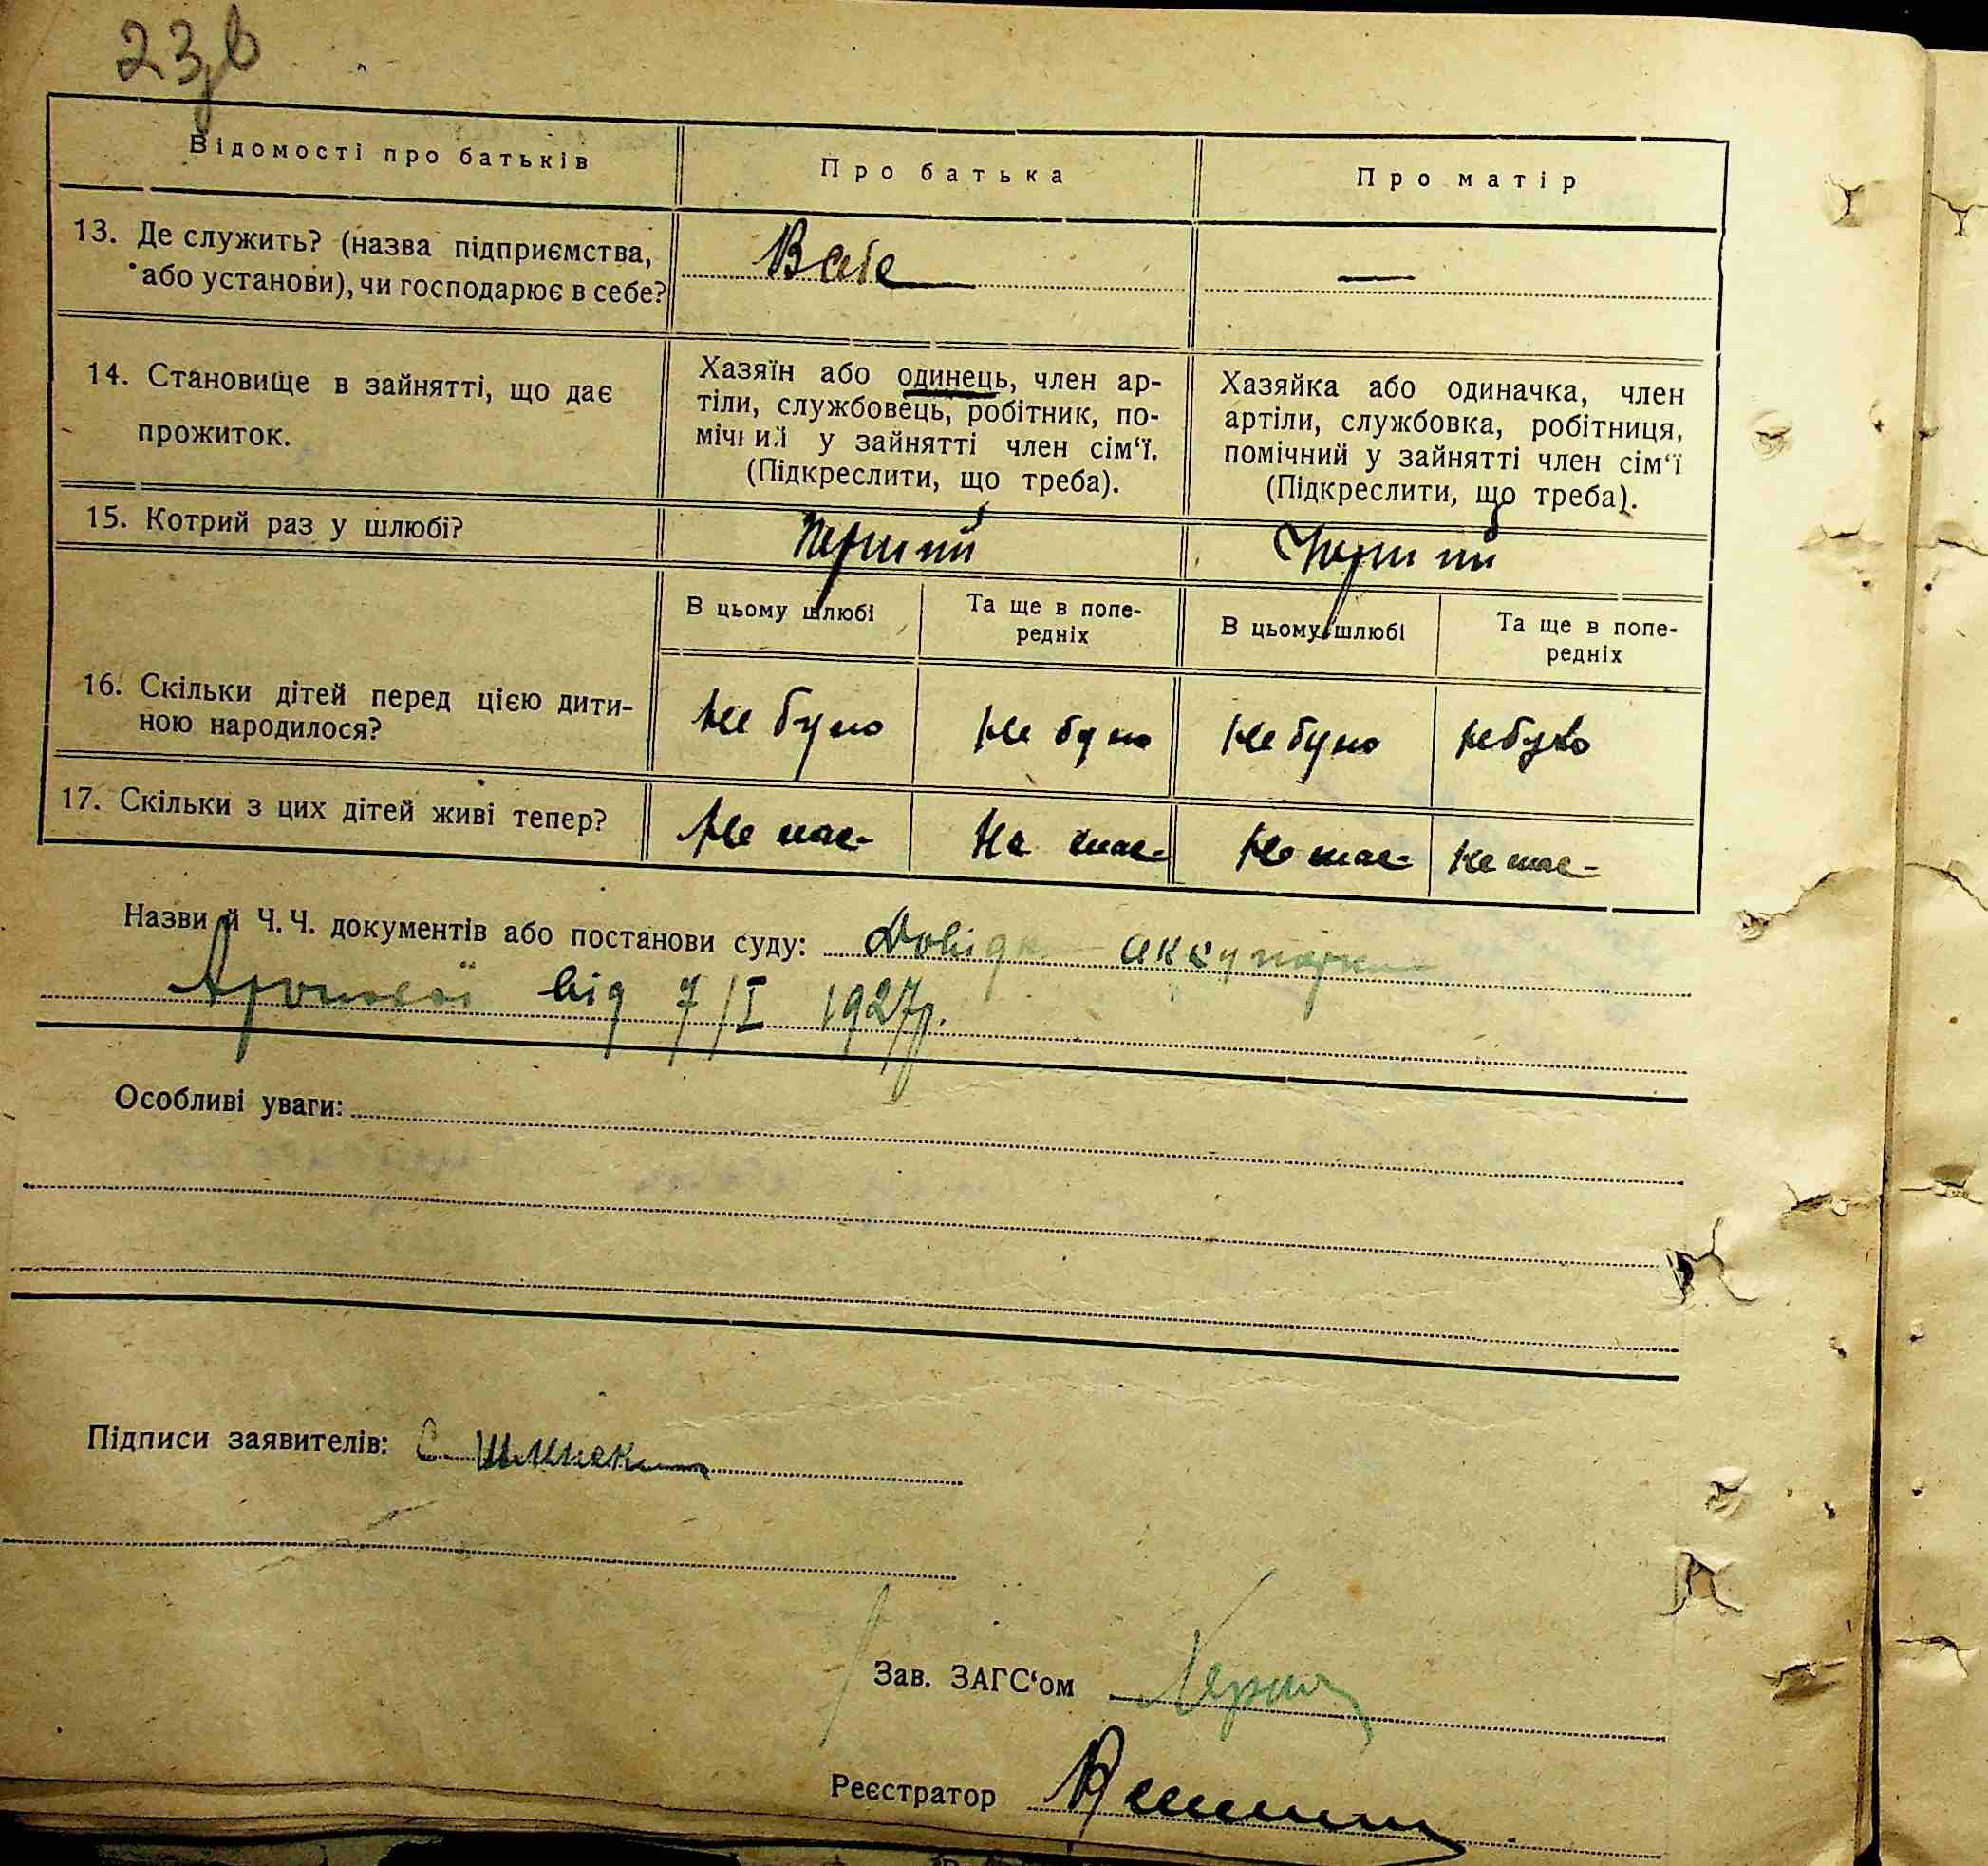 23
Відомості про батьків
Про батька
Про матір
13. Де служить? (назва підприємства,
або установи), чи господарює в себе?
В себе
—
14. Становище в зайнятті, що дає
прожиток.
Хазяїн або одинець, член ар-
тіли, службовець, робітник, по-
мічний у зайнятті член сім‘ї.
(Підкреслити, що треба).
Хазяйка або одиначка, член
артіли, службовка, робітниця,
помічний у зайнятті член сім‘ї
(Підкреслити, що треба).
15. Котрий раз у шлюбі?
Перший
Перший
В цьому шлюбі
Та ще в попе-
редніх
В цьому шлюбі
Та ще в попе-
редніх
16. Скільки дітей перед цією дити-
ною народилося?
Не було
Не було
Не було
не було
17. Скільки з цих дітей живі тепер?
Не має
Не має
Не має
не має
Назви й Ч.Ч. документів або постанови суду: Довідка акушерки
від 7/I 1927р.
Особливі уваги:
Підписи заявителів:
Зав. ЗАГС‘ом
Реєстратор